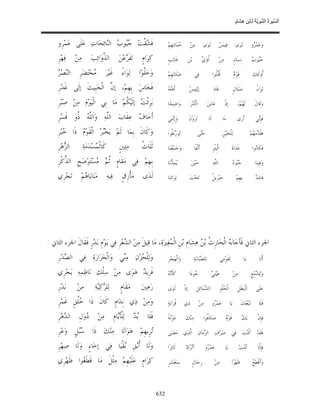 السِّيرَةُ النَّبَوِيَّةُ لابْنِ هِشَامٍ
وَعَمْرُو ثَوَى فِيمَنْ ثَوَى مِنْ حُمَاتِهِمْ فَشُقَّتْ جُيُوبُ النَّائِحَاتِ عَلَى عَمْرِو
جُيُوبُ نِسَاءٍ مِنْ لُؤَيِّ بْنِ غَالِبٍ كِرَامٍ تَفَرَّعْنَ الذَّوَائِبَ مِنْ فِهْرِ
أُولَئِكَ قَوْمٌ قُتِّلُوا فِي ضَلَالِهِمْ وَخَلَّوْا لِوَاءً غَيْرَ مُحْتَضَرِ النَّصْرِ
لِوَاءُ ضَلَالٍ قَادَ إِبْلِيسُ أَهْلَهُ فَخَاسَ بِهِمْ، إِنَّ الْخَبِيثَ إِلَى غَدْرِ
وَقَالَ لَهُمْ، إِذْ عَايَنَ الْأَمْرَ وَاضِحًا بَرِئْتُ إِلَيْكُمْ مَا بِي الْيَوْمَ مِنْ صَبْرِ
فَإِنِّي أَرَى مَا لَا تَرَوْنَ وَإِنَّنِي أَخَافُ عِقَابَ اللَّهِ وَاَللَّهُ ذُو قَسْرِ
فَقَدَّمَهُمْ لِلْحَيْنِ حَتَّى تَوَرَّطُوا وَكَانَ بِمَا لَمْ يَخْبُرْ الْقَوْمُ ذَا خُبْرِ
فَكَانُوا غَدَاةَ الْبِئْرِ أَلْفًا وَجَمْعُنَا ثَلَاثُ مِئِينٍ كَالْمُسْدَمَةِ الزُّهْرِ
وَفِينَا جُنُودُ اللَّهِ حَيْنَ يُمِدُّنَا بِهِمْ فِي مَقَامٍ ثَمَّ مُسْتَوْضَحِ الذِّكْرِ
فَشَدَّ بِهِمْ جِبْرِيلُ تَحْتَ لِوَائِنَا لَدَى مَأْزِقٍ فِيهِ مَنَايَاهُمْ تَجْرِي
الجزء الثاني فَأَجَابَهُ الْحَارِثُ بْنُ هِشَامِ بْنِ الْمُغِيرَةِ، مَا قِيلَ مِنْ الشِّعْرِ فِي يَوْمِ بَدْرٍ فَقَالَ الجزء الثاني
أَلَا يَا لِقَوْمِي لِلصَّبَابَةِ وَالْهَجْرِ وَلِلْحُزْنِ مِنِّي وَالْحَرَارَةِ فِي الصَّدْرِ
وَلِلدَّمْعِ مِنْ عَيْنَيَّ جُودًا كَأَنَّهُ فَرِيدٌ هَوَى مِنْ سِلْكِ نَاظِمِهِ يَجْرِي
عَلَى الْبَطَلِ الْحُلْوِ الشَّمَائِلِ إِذْ ثَوَى رَهِينَ مَقَامٍ لِلرَّكِيَّةِ مِنْ بَدْرِ
فَلَا تَبْعُدَنْ يَا عَمْرُو مِنْ ذِي قَرَابَةٍ وَمِنْ ذِي نِدَامٍ كَانَ ذَا خُلُقٍ غَمْرِ
فَإِنْ يَكُ قَوْمٌ صَادَفُوا مِنْكَ دَوْلَةً فَلَا بُدَّ لِلْأَيَّامِ مِنْ دُوَلِ الدَّهْرِ
فَقَدْ كُنْتَ فِي صَرْفِ الزَّمَانِ الَّذِي مَضَى تُرِيهِمْ هَوَانًا مِنْكَ ذَا سُبُلٍ وَعْرِ
فَإِلَّا أَمُتْ يَا عَمْرُو أَتْرُكْكَ ثَائِرًا وَلَا أُبْقِ بُقْيَا فِي إِخَاءٍ وَلَا صِهْرِ
وَأَقْطَعُ ظَهْرًا مِنْ رِجَالٍ بِمَعْشَرٍ كِرَامٍ عَلَيْهِمْ مِثْلَ مَا قَطَعُوا ظَهْرِي
632